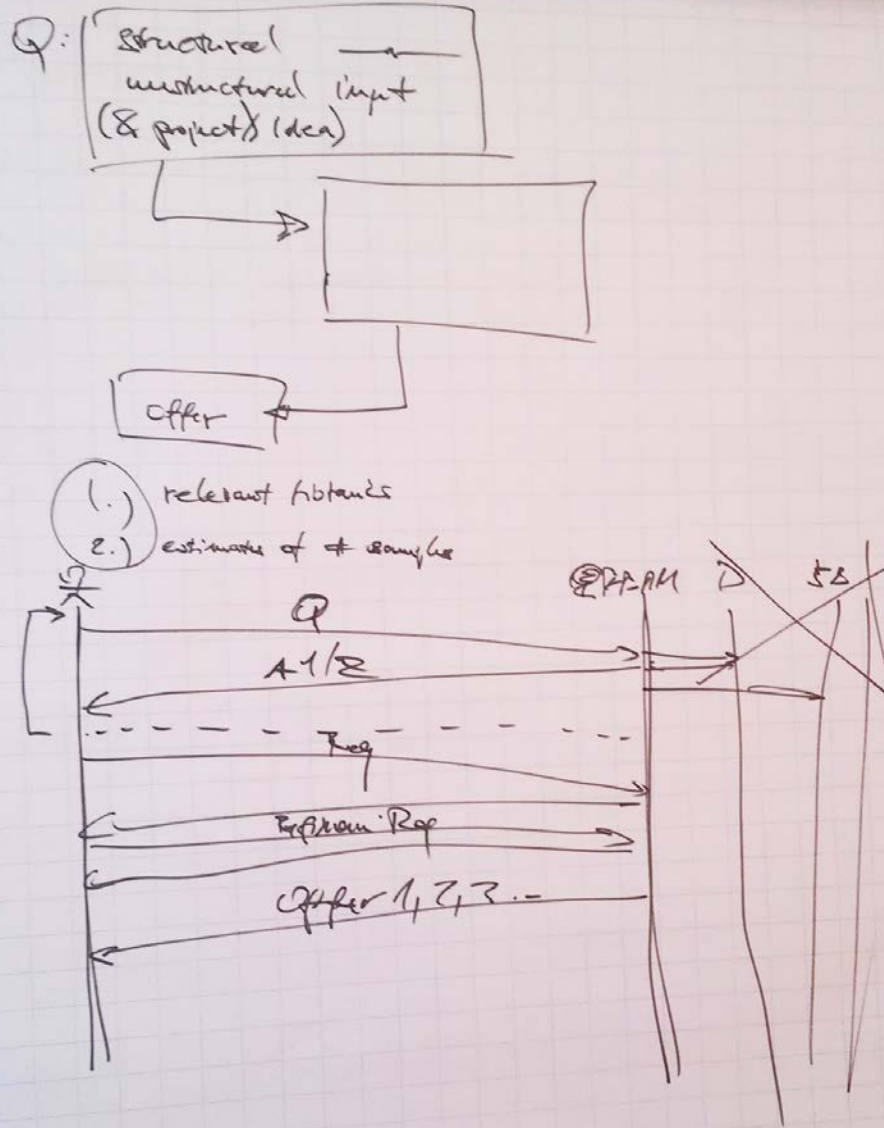 Q:
structured
unstructured input
(& project / idea)
Offer
1.) relevant
2.) estimates of # samples
Q
A 1/2
Req
Req
Offer 1, 2, 3 ..